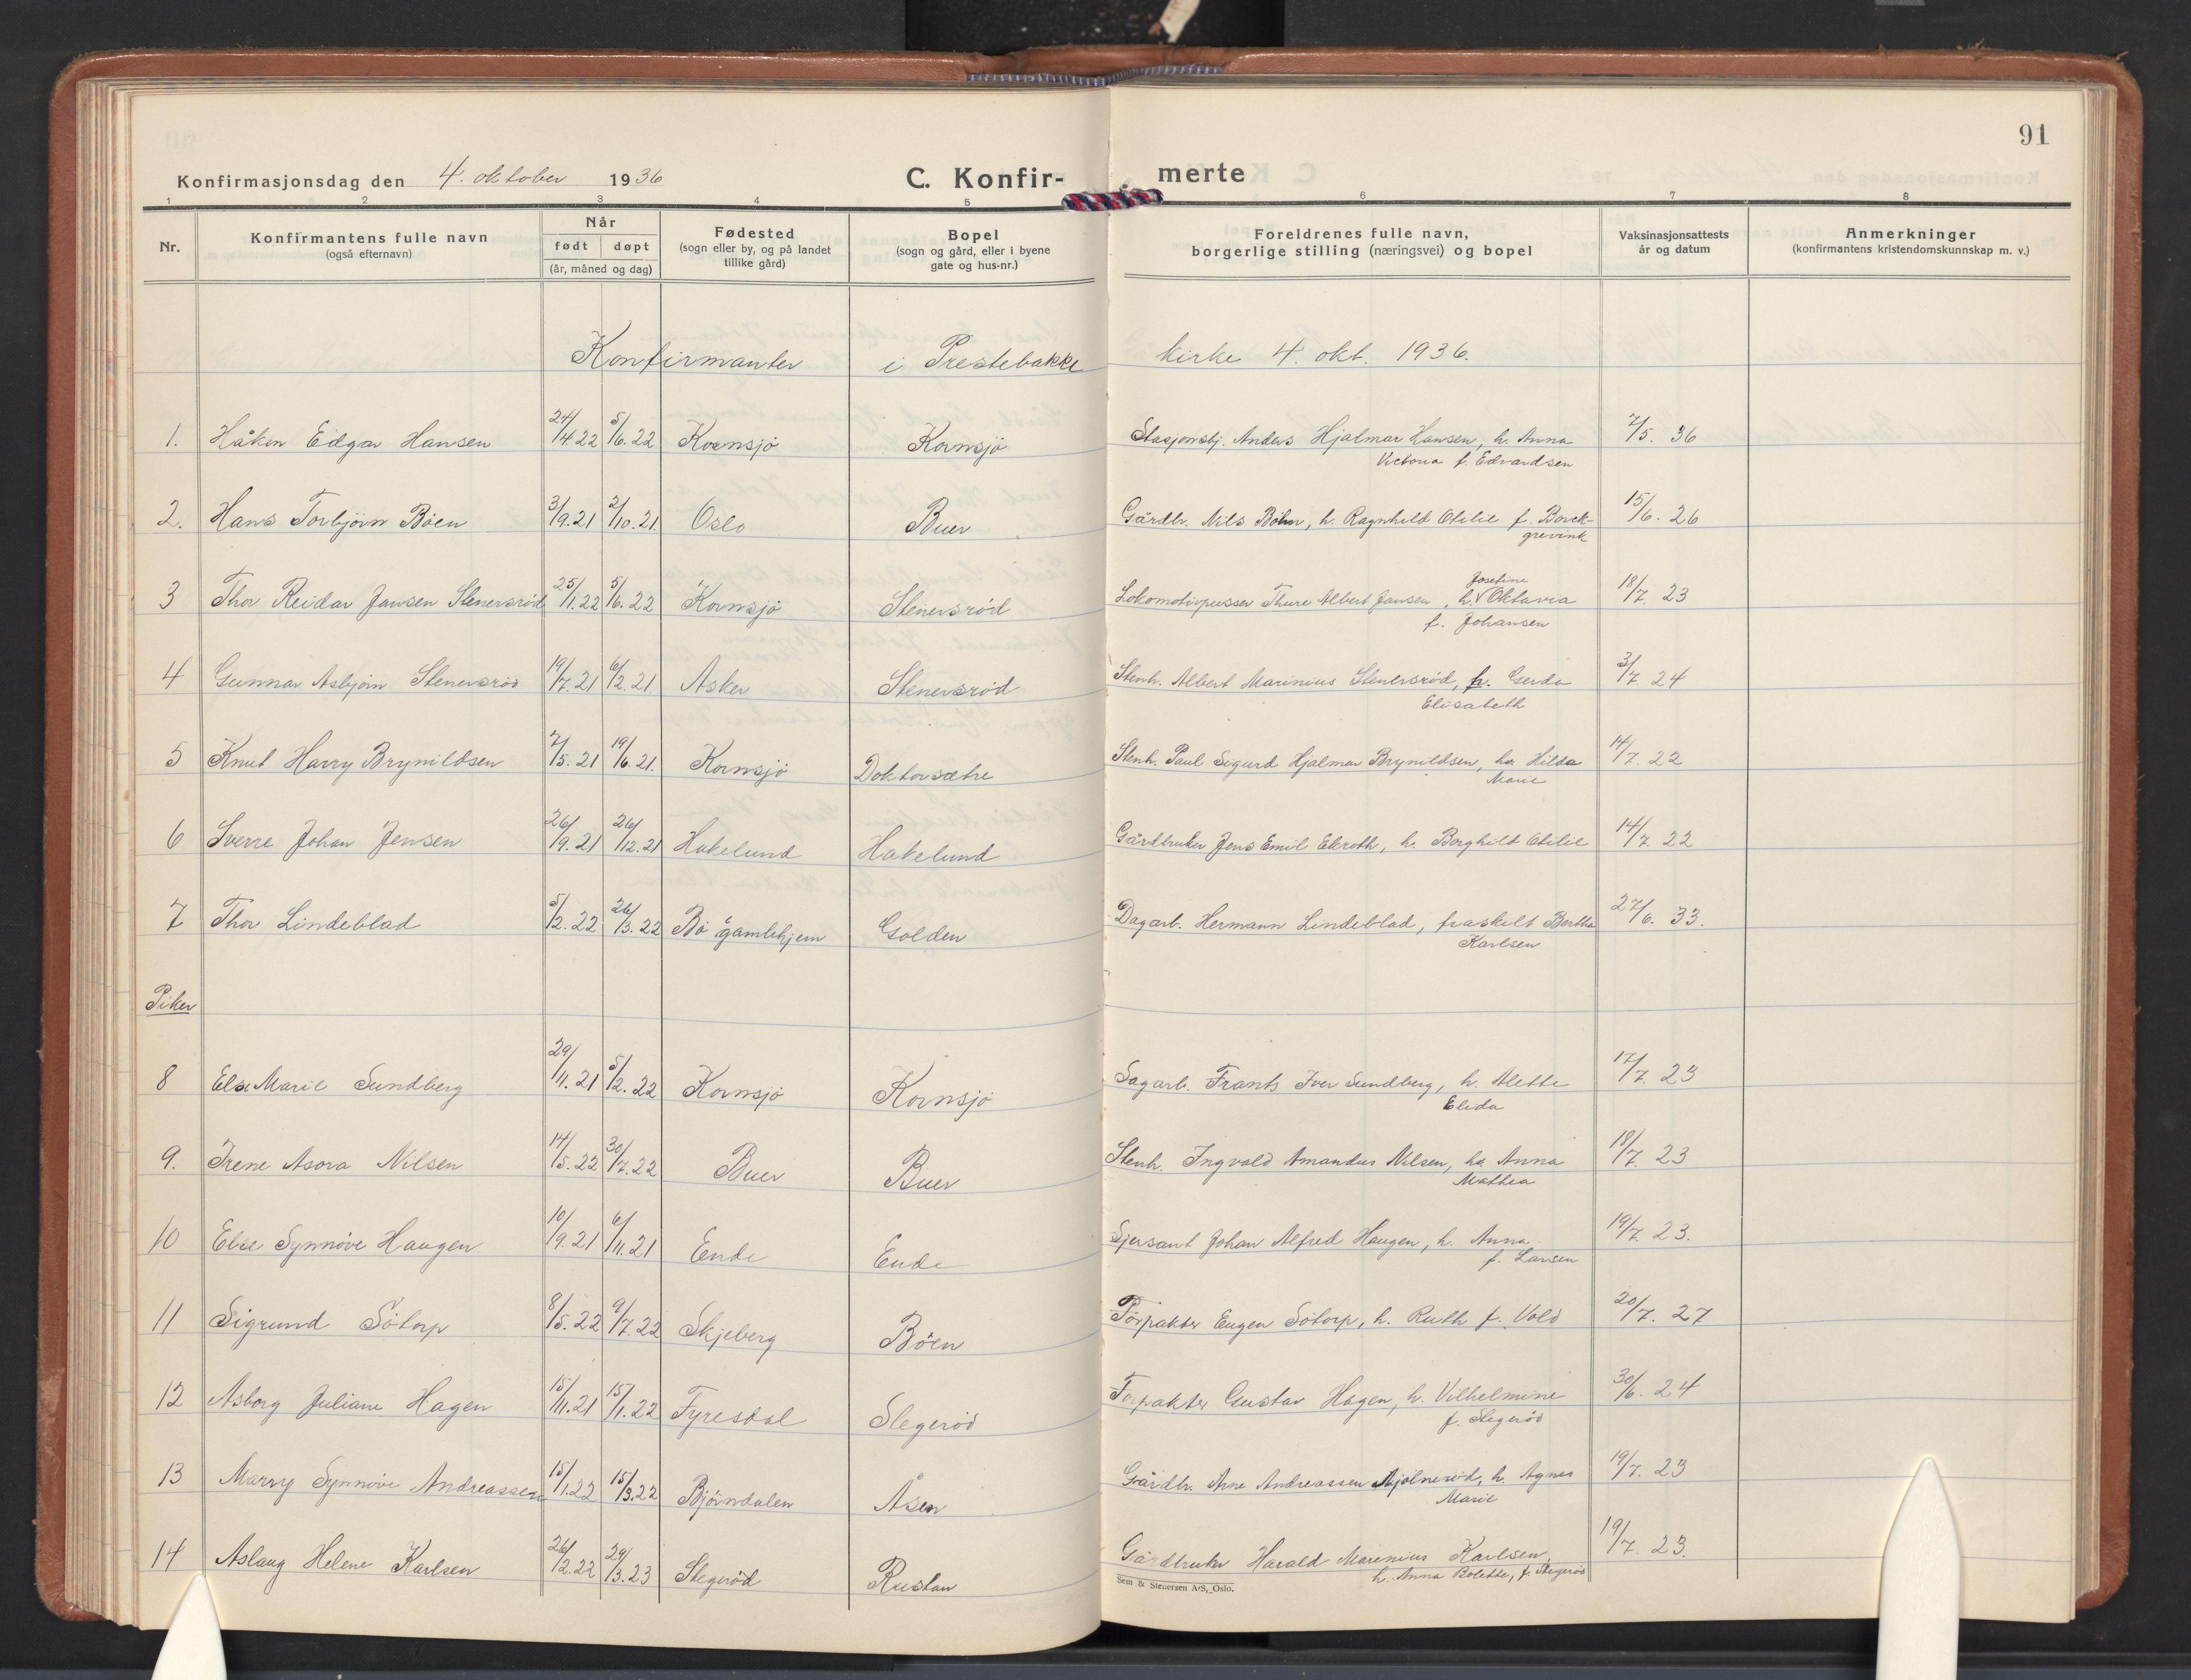 91
Konfirmasjonsdag den 4. oktober 1936 C. Konfir- merte
1 2 3 4 5 6 7 8
Nr. Konfirmantens fulle navn (også efternavn) Når født døpt (år, måned og dag) Fødested (sogn eller by, og på landet tillike gård) Bopel (sogn og gård, eller i byene gate og hus-nr.) Foreldrenes fulle navn, borgerlige stilling (næringsvei) og bopel Vaksinasjonsattests år og datum Anmerkninger (konfirmantens kristendomskunnskap m. v.)
Konfirmanter i Prestebakke kirke 4. okt. 1936.
1. Håkon Edgar Hansen 24/4.22 5/6.22 Kornsjø Kornsjø Stasjonsbj. Anders Hjalmar Hansen, h. Anna 7/5. 36
Victoria f. Edvardsen
2. Hans Torbjørn Bøen 3/9.21 2/10.21. Oslo Buer Gårdbr. Nils Bøhn, h. Ragnhild Otilie f. Borck- 15/6. 26
grevink
3 Thor Reidar Jansen Stenersrød 25/1.22 5/6.22 Kornsjø Stenersrød Lokomotivpusser Thure Albert Jansen, h. Josefine Oktavia 18/7. 23
f. Johansen
4 Gunnar Asbjørn Stenersrød 19/7.21 6/2.21 Asker Stenersrød Stenh. Albert Marinius Stenersrød, h. Gerda 3/7. 24
Elisabeth
5 Knut Harry Brynildsen 7/5.21 19/6.21. Kornsjø Doktorsætre Stenh. Paul Sigurd Hjalmar Brynildsen, ha Hilda 14/7. 22
Marie
6 Sverre Johan Jensen 26/9.21 26/12.21 Hakelund Hakelund Gårdbruker Jens Emil Ekroth, h. Borghild Otilie 14/7. 22
7 Thor Lindeblad 5/2.22 26/3.22 Bø gamlehjem Golden Dagarb. Hermann Lindeblad, fraskilt Bertha 27/6. 33.
Karlsen
Piker
8 Else Marie Sundberg 29/11.21 5/2.22 Kornsjø Kornsjø Sagarb. Frants Iver Sundberg, h. Alette 17/7. 23
Elida
9. Irene Asora Nilsen 14/5.22 30/7.22 Buer Buer Stenh. Ingvald Amandus Nilsen, ha Anna 18/7. 23
Mathea
10 Else Synnøve Haugen. 10/9.21 6/11.21 Ende Ende Sjersant Johan Alfred Haugen, h. Anna 19/7. 23.
f. Larsen
11 Sigrund Søtorp 8/5.22 9/7.22 Skjeberg Bøen Forpakter Eugen Søtorp, h. Ruth f. Vold 20/7. 27
12 Asborg Juliane Hagen 15/11.21 15/1.22 Fyresdal Slegerød Forpakter Gustav Hagen, h. Vilhelmine 30/6. 24
f. Slegerød
13 Marry Synnøve Andreassen 15/1.22 15/3.22 Bjørndalen Åsen Gårdbr. Arne Andreassen Mjølnerød, h. Agnes 19/7. 23
Marie
14 Aslaug Helene Karlsen 26/2.22 29/3.23 Stegerød Rustan Gårdbruker Harald Marenius Karlsen, 19/7 23.
h. Anna Bolette, f. Stegerød
Sem & Stenersen A/S, Oslo.